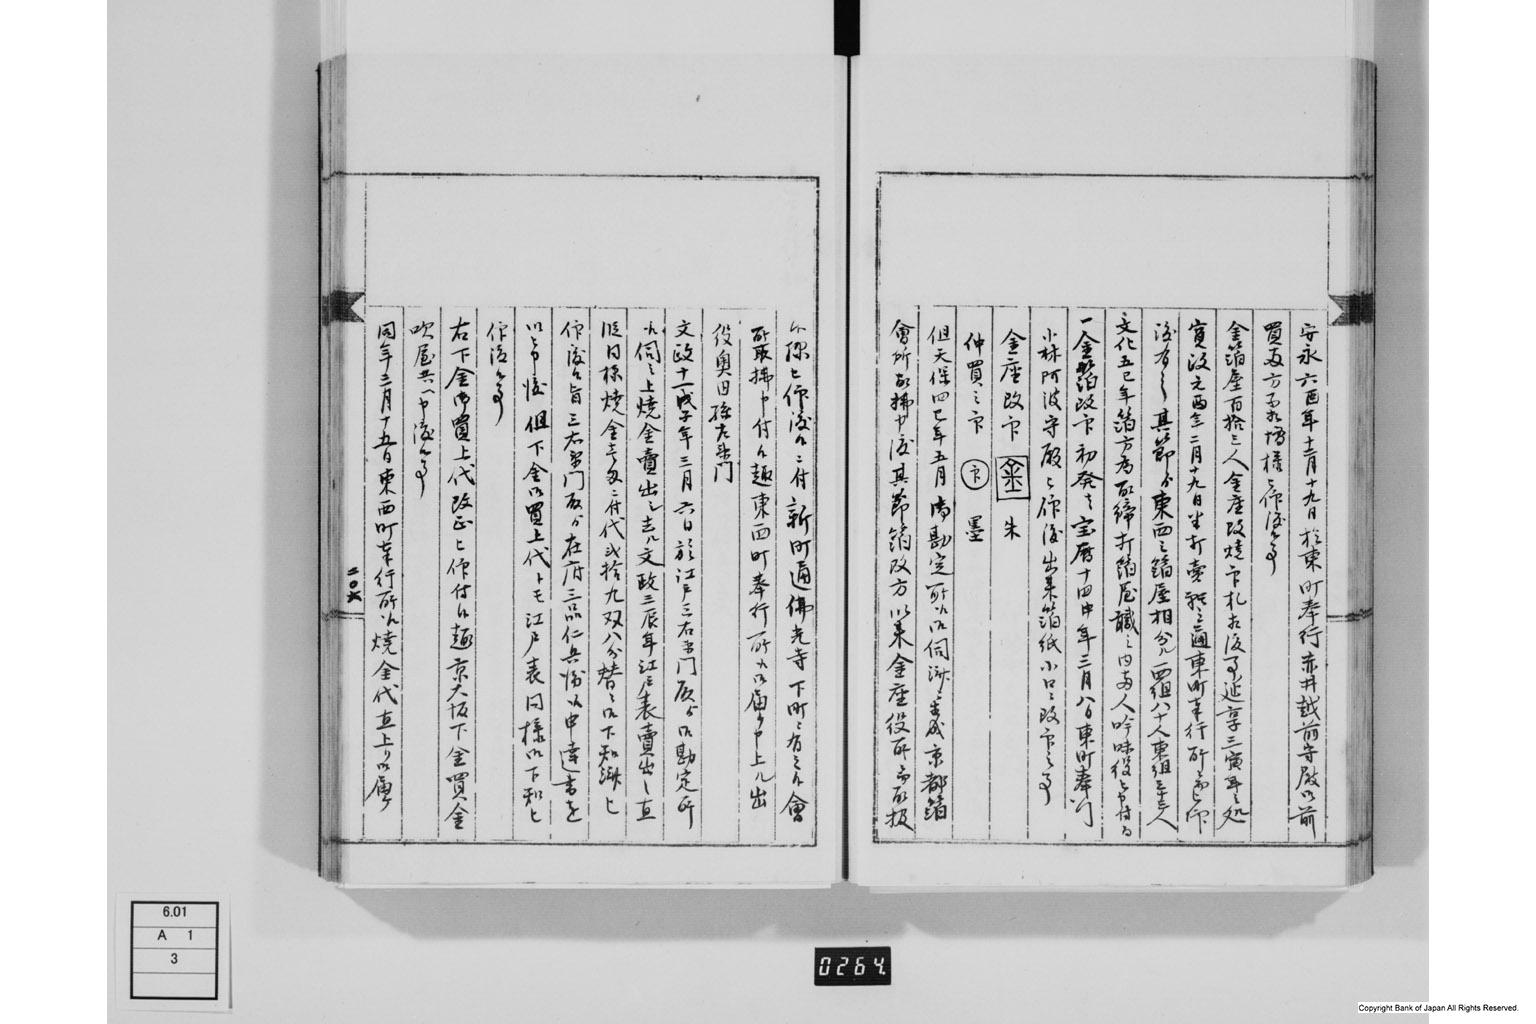 安永六酉年十二月十九日於東町奉行赤井越前守殿御前
買方
金箔屋百拾三人金座改焼印札相渡ル事延享三寅年之処
寛政元酉年二月十九日
渡有之其節ゟ東西之箔屋相分ル西組八十人東組三十三人
文化五巳年箔方為取締打箔屋職之内両人吟味役被申付ル
一金箔改印初発ハ宝暦十四申年三月八日東町奉行
小林阿波守殿ゟ作渡出来箔紙小口ニ改印之事
金座改印 金 朱
仲買之印 印 墨
但天保四巳年五月御勘定所江御伺済ニ相成京都箔
会所取払申渡其節箔改方以来金座役所ニ而取扱
候様被仰渡候ニ付新町通佛光寺下町ニ有之候会
所取払申付候趣東西町奉行所江御届申上ル出
役奥田孫左衛門
文政十一戊子年三月六日於江戸三右衛門殿ゟ御勘定所
江伺之上焼金売出之去ル文政三辰年江戸表売出之直
段同様焼金壱両ニ付代弐拾九匁八分替之御下知済被
仰渡候旨三右衛門殿ゟ在府三品仁兵衛江申達書を
以被申渡但下金御買上代トモ江戸表同様御下知被
仰渡候事
右下金御買上代改正被仰付候趣京大坂下金買金
吹屋共江申渡候事
同年三月十五日東西町奉行所江焼金代直上り御届ケ
二〇六
6.01
A 1
3
0264.
Copyright Bank of Japan All Rights Reserved.